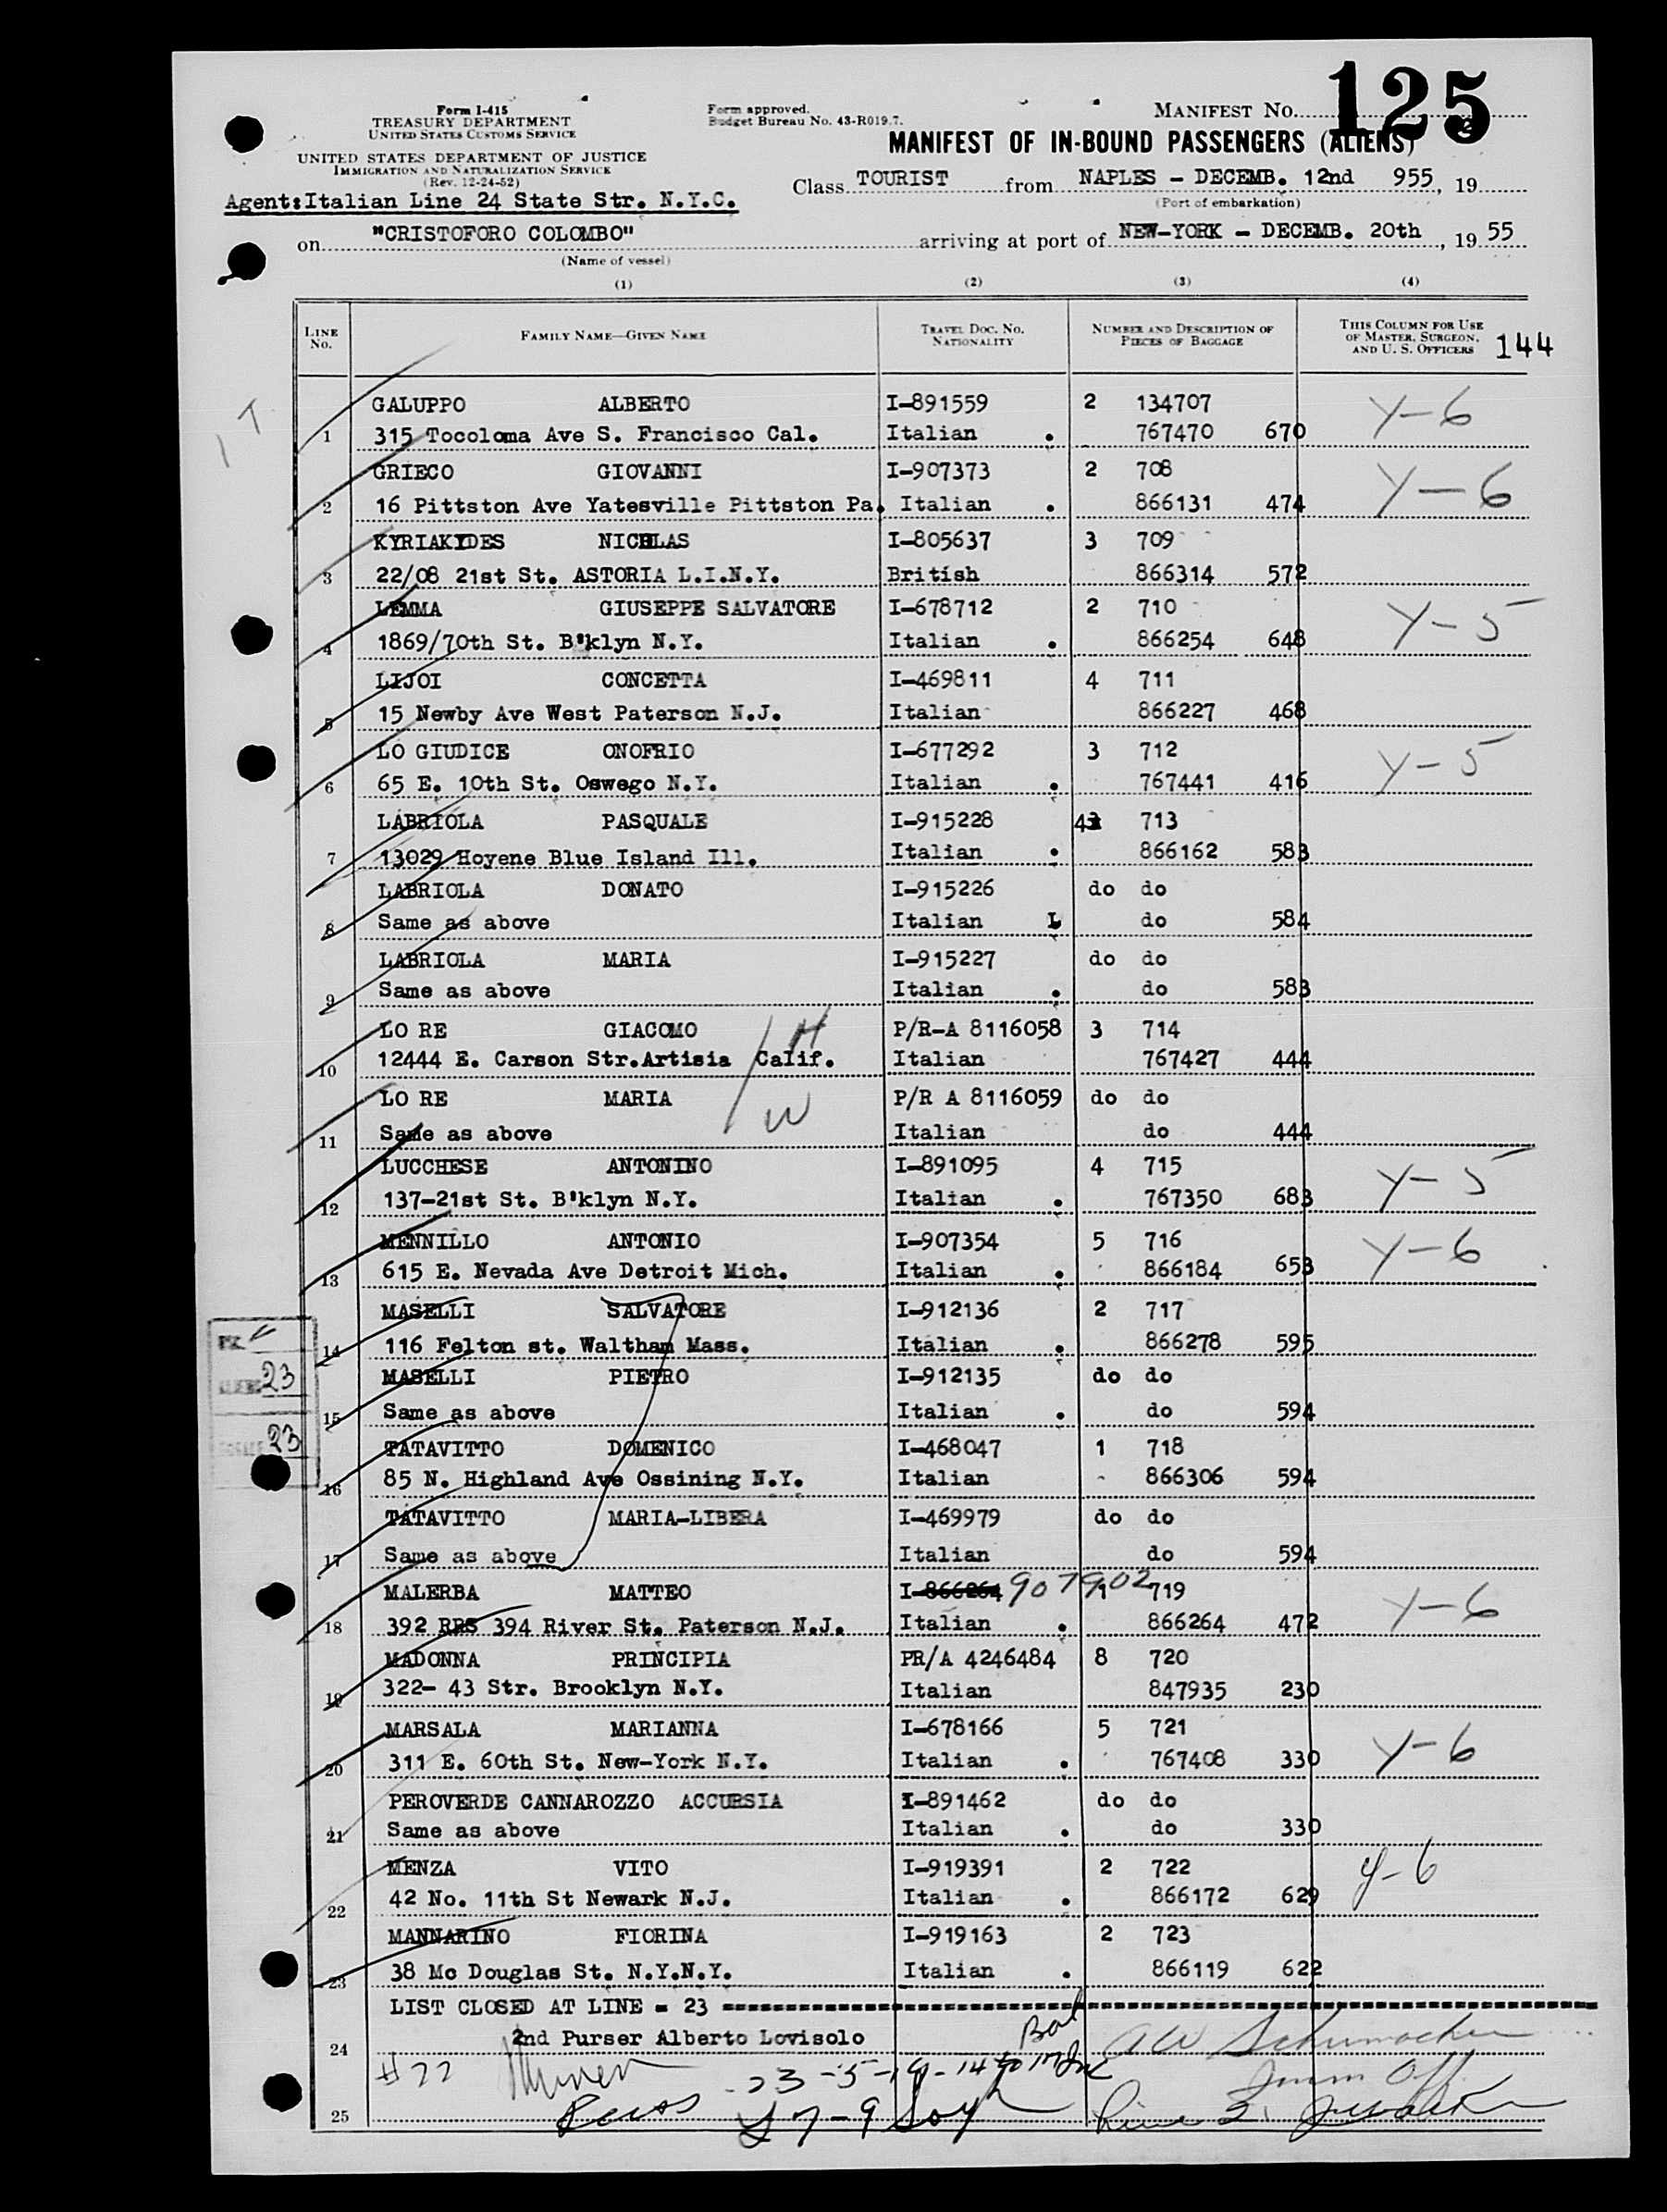 125
Form I-415
TREASURY DEPARTMENT
UNITED STATES CUSTOMS SERVICE
Form approved.
Budget Bureau No. 43-R019.7.
MANIFEST No.
MANIFEST OF IN-BOUND PASSENGERS (ALIENS)
UNITED STATES DEPARTMENT OF JUSTICE
IMMIGRATION AND NATURALIZATION SERVICE
(Rev. 12-24-52)
Class TOURIST from NAPLES - DECEMB. 12nd 955, 19
(Port of embarkation)
Agent:Italian Line 24 State Str. N.Y.C.
on "CRISTOFORO COLOMBO" arriving at port of NEW-YORK - DECEMB. 20th, 19 55
(Name of vessel)
(1) (2) (3) (4)
LINE No. FAMILY NAME—GIVEN NAME TRAVEL DOC. NO. NATIONALITY NUMBER AND DESCRIPTION OF PIECES OF BAGGAGE THIS COLUMN FOR USE OF MASTER, SURGEON, AND U. S. OFFICERS 144
GALUPPO ALBERTO I-891559 2 134707 Y-6
1 315 Tocoloma Ave S. Francisco Cal. Italian . 767470 670
GRIECO GIOVANNI I-907373 2 708 Y-6
2 16 Pittston Ave Yatesville Pittston Pa. Italian . 866131 474
KYRIAKYDES NICHLAS I-805637 3 709
3 22/08 21st St. ASTORIA L.I.N.Y. British 866314 572
LEMMA GIUSEPPE SALVATORE I-678712 2 710 Y-5
4 1869/70th St. B'klyn N.Y. Italian . 866254 648
LIJOI CONCETTA I-469811 4 711
5 15 Newby Ave West Paterson N.J. Italian 866227 468
LO GIUDICE ONOFRIO I-677292 3 712 Y-5
6 65 E. 10th St. Oswego N.Y. Italian . 767441 416
LABRIOLA PASQUALE I-915228 713
7 13029 Hoyene Blue Island Ill. Italian . 866162 583
LABRIOLA DONATO I-915226 do do
8 Same as above Italian do 584
LABRIOLA MARIA I-915227 do do
9 Same as above Italian . do 583
LO RE GIACOMO H P/R-A 8116058 3 714
10 12444 E. Carson Str.Artisia Calif. Italian 767427 444
LO RE MARIA W P/R A 8116059 do do
11 Same as above Italian do 444
LUCCHESE ANTONINO I-891095 4 715 Y-5
12 137-21st St. B'klyn N.Y. Italian . 767350 683
MENNILLO ANTONIO I-907354 5 716 Y-6
13 615 E. Nevada Ave Detroit Mich. Italian . 866184 653
MASELLI SALVATORE I-912136 2 717
14 116 Felton st. Waltham Mass. Italian . 866278 595
23
MASELLI PIETRO I-912135 do do
15 Same as above Italian . do 594
23
TATAVITTO DOMENICO I-468047 1 718
16 85 N. Highland Ave Ossining N.Y. Italian 866306 594
TATAVITTO MARIA-LIBERA I-469979 do do
17 Same as above Italian do 594
MALERBA MATTEO I-866264 907902 1 719 Y-6
18 392 RRS 394 River St. Paterson N.J. Italian . 866264 472
MADONNA PRINCIPIA PR/A 4246484 8 720
19 322- 43 Str. Brooklyn N.Y. Italian 847935 230
MARSALA MARIANNA I-678166 5 721 Y-6
20 311 E. 60th St. New-York N.Y. Italian . 767408 330
PEROVERDE CANNAROZZO ACCURSIA I-891462 do do
21 Same as above Italian . do 330
MENZA VITO I-919391 2 722 Y-6
22 42 No. 11th St Newark N.J. Italian . 866172 629
MANNARINO FIORINA I-919163 2 723
23 38 Mc Douglas St. N.Y.N.Y. Italian . 866119 622
LIST CLOSED AT LINE = 23
2nd Purser Alberto Lovisolo
24 AW Schumacher
#77
Imm Off
25